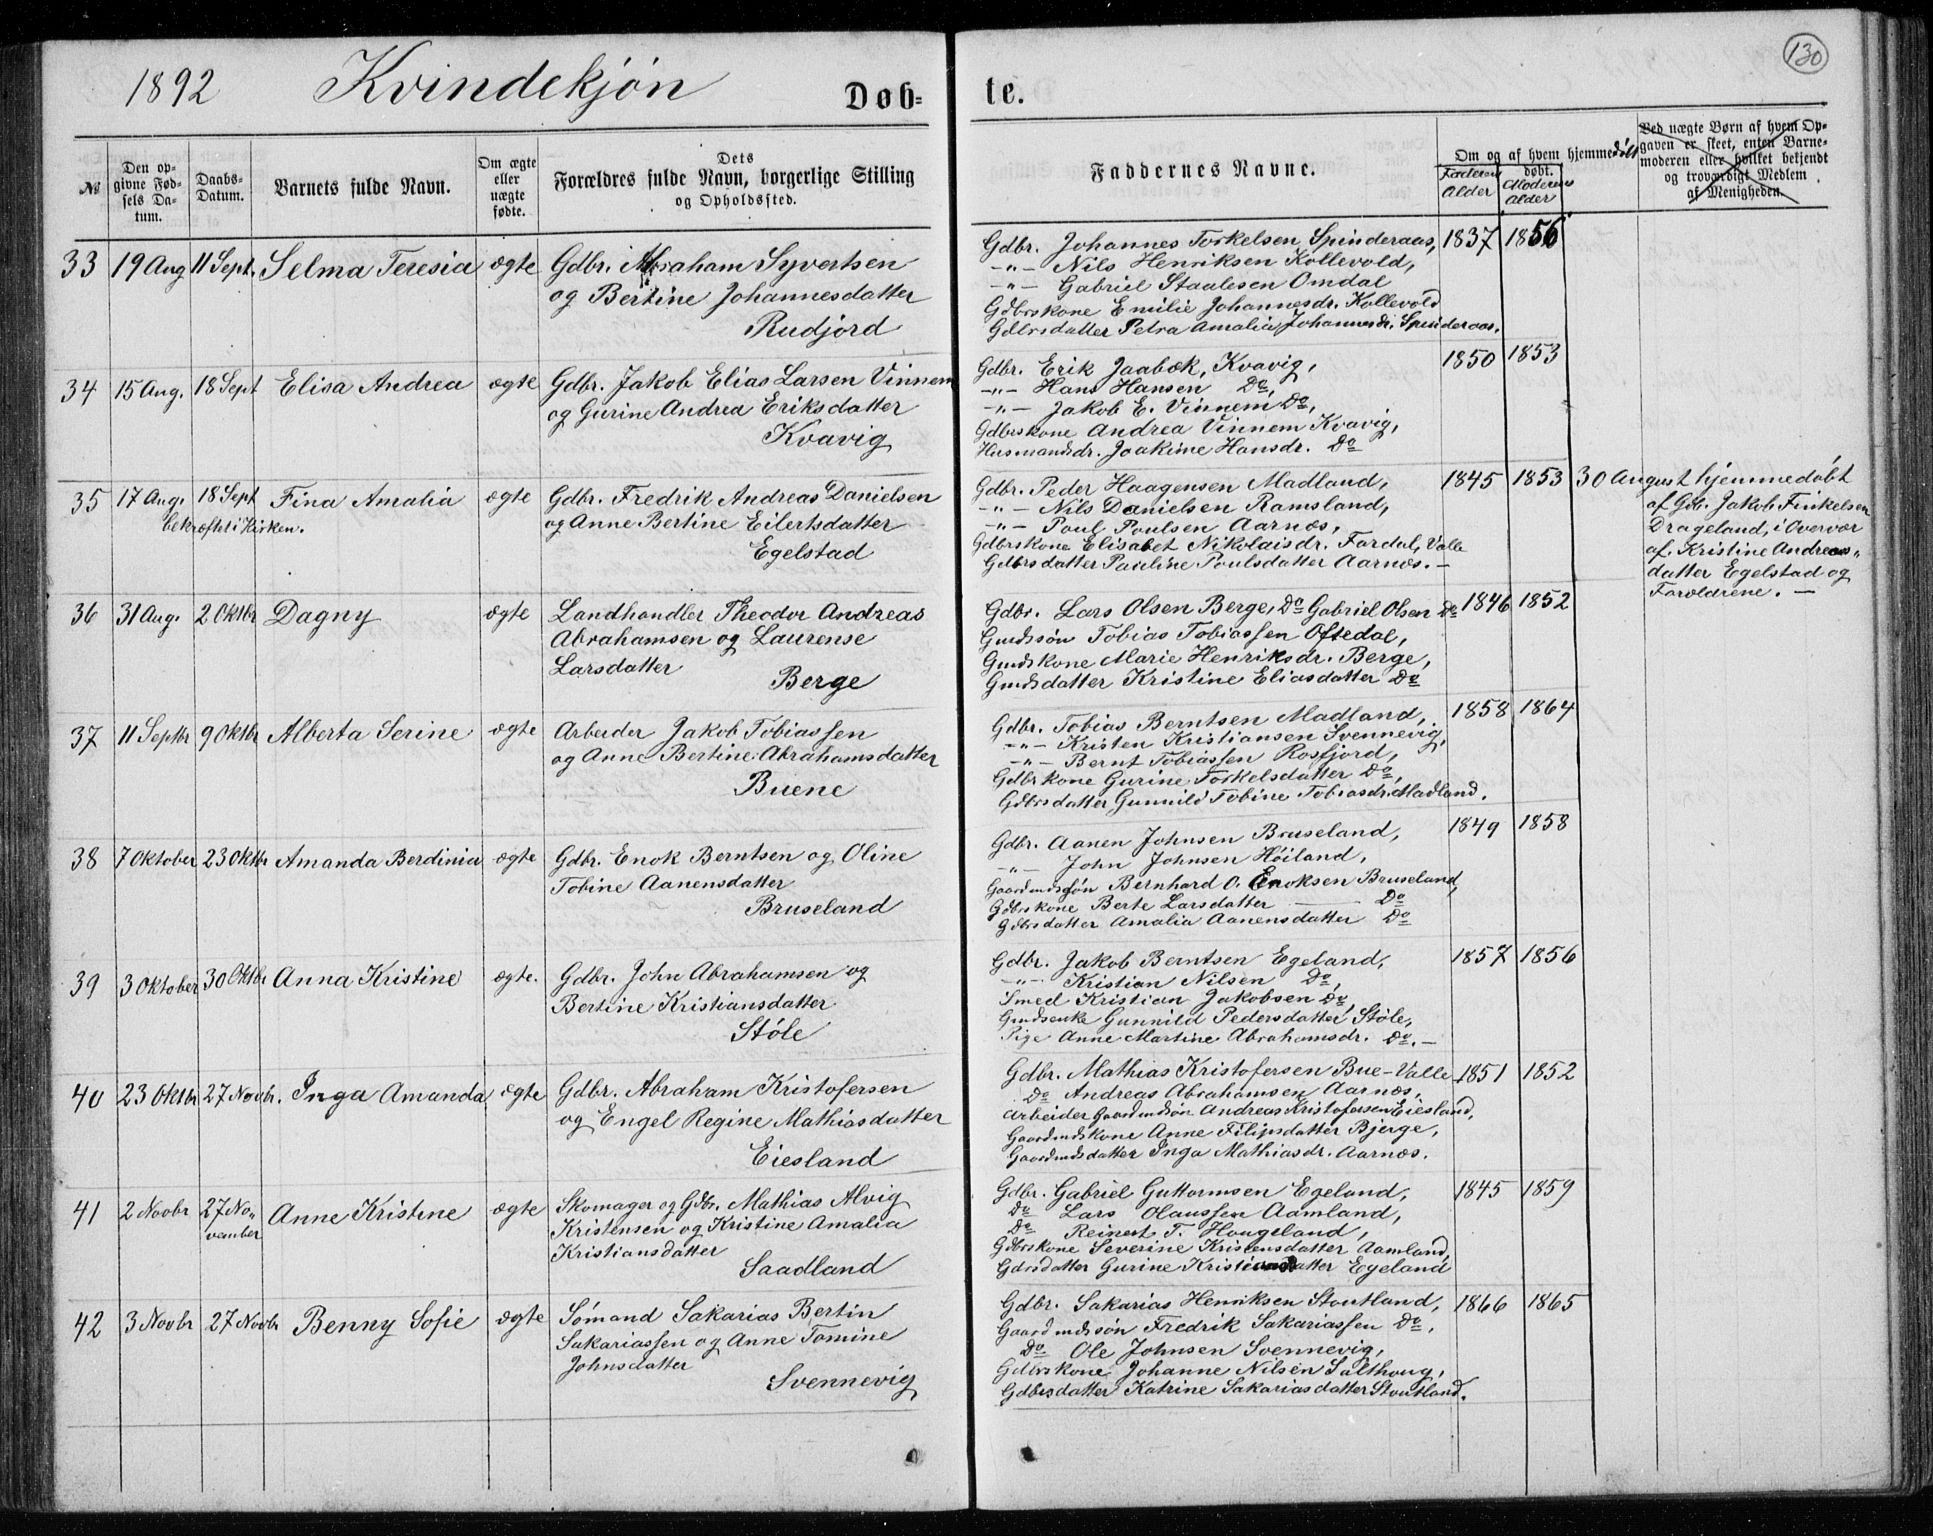 1892 Kvindekjön Døb=
te. 130
№
Den op-
givne Fød-
sels Da-
tum.
Daabs-
Datum.
Barnets fulde Navn.
Om ægte
eller
uægte
fødte.
Dets
Forældres fulde Navn, borgerlige Stilling
og Opholdssted.
Faddernes Navne.
Om og af hvem hjemmedöbt
døbt.
Faderens
Alder
Moderens
Alder
Ved uægte Børn af hvem Op-
gaven er skeet, enten Barne-
moderen eller hvilket bekjendt
og troværdigt Medlem
af Menigheden.
33 19 Aug 11 Sept. Selma Teresia ægte
Gdbr. Abraham Syvertsen
og Bertine Johannesdatter
Rudjord
Gdbr. Johannes Torkelsen Spinderaas, 1837 1856
-"- Nils Henriksen Kollevold,
-"- Gabriel Staalesen Omdal
Gdbrskone Emilie Johannesdr. Kollevold
Gdbrsdatter Petra Amalia Johannesdr. Spinderaas.
34 15 Aug. 18 Sept Elisa Andrea ægte
Gdbr. Jakob Elias Larsen Vinnem
og Gurine Andrea Eriksdatter
Kvavig
Gdbr. Erik Jaabæk, Kvavig, 1850 1853
-"- Hans Hansen Do,
-"- Jakob E. Vinnem Do,
Gdbrskone Andrea Vinnem Kvavig,
Husmandsdr. Joakime Hansdr. Do
35 17 Aug. 18 Sept Fina Amalia ægte
bekræftet i Kirken.
Gdbr. Fredrik Andreas Danielsen
og Anne Bertine Eilertsdatter
Egelstad
Gdbr. Peder Haagensen Madland, 1845 1853
-"- Nils Danielsen Ramsland,
-"- Poul Poulsen Aarnæs,
Gdbrskone Elisabet Nikolaisdr. Fardal, Valle
Gdbrsdatter Pauline Poulsdatter Aarnæs. -
30 August hjemmedöbt
af Gdb. Jakob Finkelsen
Drageland, i Overvær
af Kristine Andreas"
datter Egelstad og
Forældrene. -
36 31 Aug. 2 Oktbr Dagny ægte
Landhandler Theodor Andreas
Abrahamsen og Laurense
Larsdatter
Berge
Gdbr. Lars Olsen Berge, Do Gabriel Olsen Do 1846 1852
Gmdssön Tobias Tobiassen Oftedal,
Gmdskone Marie Henriksdr. Berge,
Gmdsdatter Kristine Eliasdatter Do
37 11 Septbr 9 Oktbr Alberta Serine ægte
Arbeider Jakob Tobiassen
og Anne Bertine Abrahamsdatter
Buene
Gdbr. Tobias Berntsen Madland, 1858 1864
-"- Kristen Kristiansen Svennevig,
-"- Bernt Tobiassen Rosfjord,
Gdbrkone Gurine Torkelsdatter Do,
Gdbrsdatter Gunnild Tobine Tobiasdr. Madland.
38 7 Oktober 23 Oktbr Amanda Berdinia ægte
Gdbr. Enok Berntsen og Oline
Tobine Aanensdatter
Bruseland
Gdbr. Aanen Johnsen Bruseland, 1849 1858
-"- John Johnsen Höiland,
Gaardmdssön Bernhard O. Enoksen Bruseland,
Gdbrskone Berte Larsdatter Do
Gdbrsdatter Amalia Aanensdatter Do
39 3 Oktober 30 Oktbr Anna Kristine ægte.
Gdbr. John Abrahamsen og
Bertine Kristiansdatter
Støle
Gdbr. Jakob Berntsen Egeland, 1857 1856
-"- Kristian Nilsen Do,
Smed Kristian Jakobsen Do,
Gmdsenke Gunnild Pedersdatter Støle,
Pige Anne Martine Abrahamsdr. Do. -
40 23 Oktbr 27 Novbr. Inga Amanda ægte
Gdbr. Abraham Kristofersen
og Engel Regine Mathiasdatter
Eiesland
Gdbr. Mathias Kristofersen Bue-Valle 1851 1852
Do Andreas Abrahamsen Aarnæs,
Arbeider Gaardmdssön Andreas Kristofersen Eiesland,
Gaardmdskone Anne Filipsdatter Bjerge,
Gaardmdsdatter Inga Mathiasdr. Aarnæs.
41 2 Novbr 27 No"
vember Anne Kristine ægte
Skomager og Gdbr. Mathias Alvig
Kristensen og Kristine Amalia
Kristiansdatter
Saadland
Gdbr. Gabriel Guttormsen Egeland, 1845 1859
Do Lars Olaussen Aamland,
Do Reinert T. Haugeland,
Gdbrskone Severine Kristensdatter Aamland,
Gdbrsdatter Gurine Kristiansdatter Egeland
42 3 Novbr 27 Novbr Benny Sofie ægte
Sömand Sakarias Bertin
Sakariassen og Anne Tomine
Johnsdatter
Svennevig
Gdbr. Sakarias Henriksen Stoutland, 1866 1865
Gaardmdssön Fredrik Sakariassen Do,
Do Ole Johnsen Svennevig,
Gdbrskone Johanne Nilsen Salthoug,
Gdbrsdatter Katrine Sakariasdatter Stoutland.